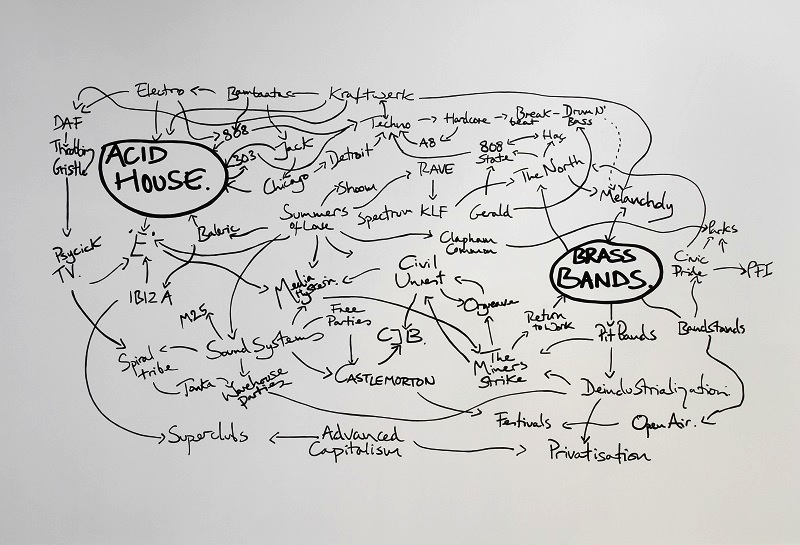 Electro
Bambaataa
Kraftwerk
DAF
808
Techno
Hardcore
Break-
beat
Drum N'
Bass
Throbbing
Gristle
ACID
HOUSE.
303
Jack
Detroit
A8
808
State
Hac
Chicago
Shoom
RAVE
The North
Melancholy
Summers
of Love
Spectrum
KLF
Gerald
Balaric
Clapham
Common
Parks
Psychick
TV.
'E'.
Media
Hysteria
Civil
Unrest
BRASS
BANDS.
Civic
Pride
PFI
IBIZA
M25
Free
Parties
Orgreave
Return
to Work
Pit Bands
Bandstands
Spiral
tribe
Sound Systems
CJB.
The
Miners
Strike
Tonka
Warehouse
Parties
CASTLEMORTON
Deindustrialization
Festivals
Open Air.
Superclubs
Advanced
Capitalism
Privatisation